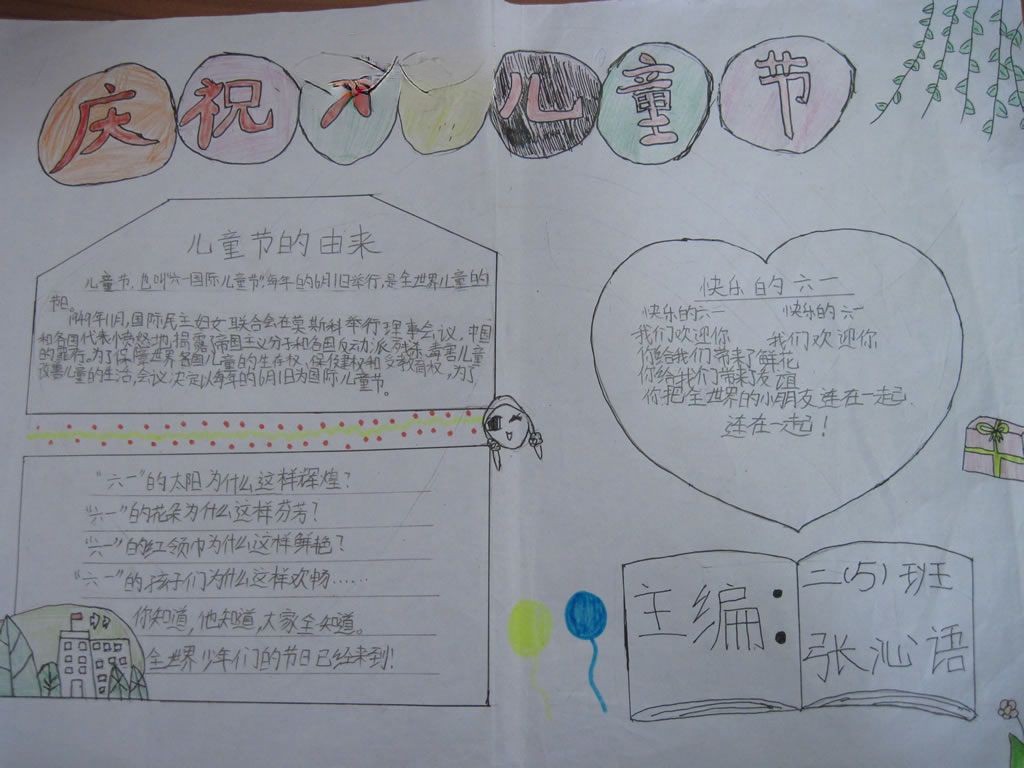 庆祝六 儿童节
儿童节的由来
儿童节,也叫“六一国际儿童节”,每年的6月1日举行,是全世界儿童的
节日。
1949年11月,国际民主妇女联合会在莫斯科举行理事会议,中国
和各国代表愤怒地揭露了帝国主义分子和各国反动派残杀、毒害儿童
的罪行。为了保障世界各国儿童的生存权、保健权和受教育权,为了
改善儿童的生活,会议决定以每年的6月1日为国际儿童节。
“六一”的太阳为什么这样辉煌?
“六一”的花朵为什么这样芬芳?
“六一”的红领巾为什么这样鲜艳?
“六一”的孩子们为什么这样欢畅……
你知道,他知道,大家全知道。
全世界少年们的节日已经来到!
快乐的六一
快乐的六一 快乐的六一
我们欢迎你 我们欢迎你
你给我们带来了鲜花
你给我们带来了友谊
你把全世界的小朋友连在一起,
连在一起!
主编:
二(5)班
张沁语